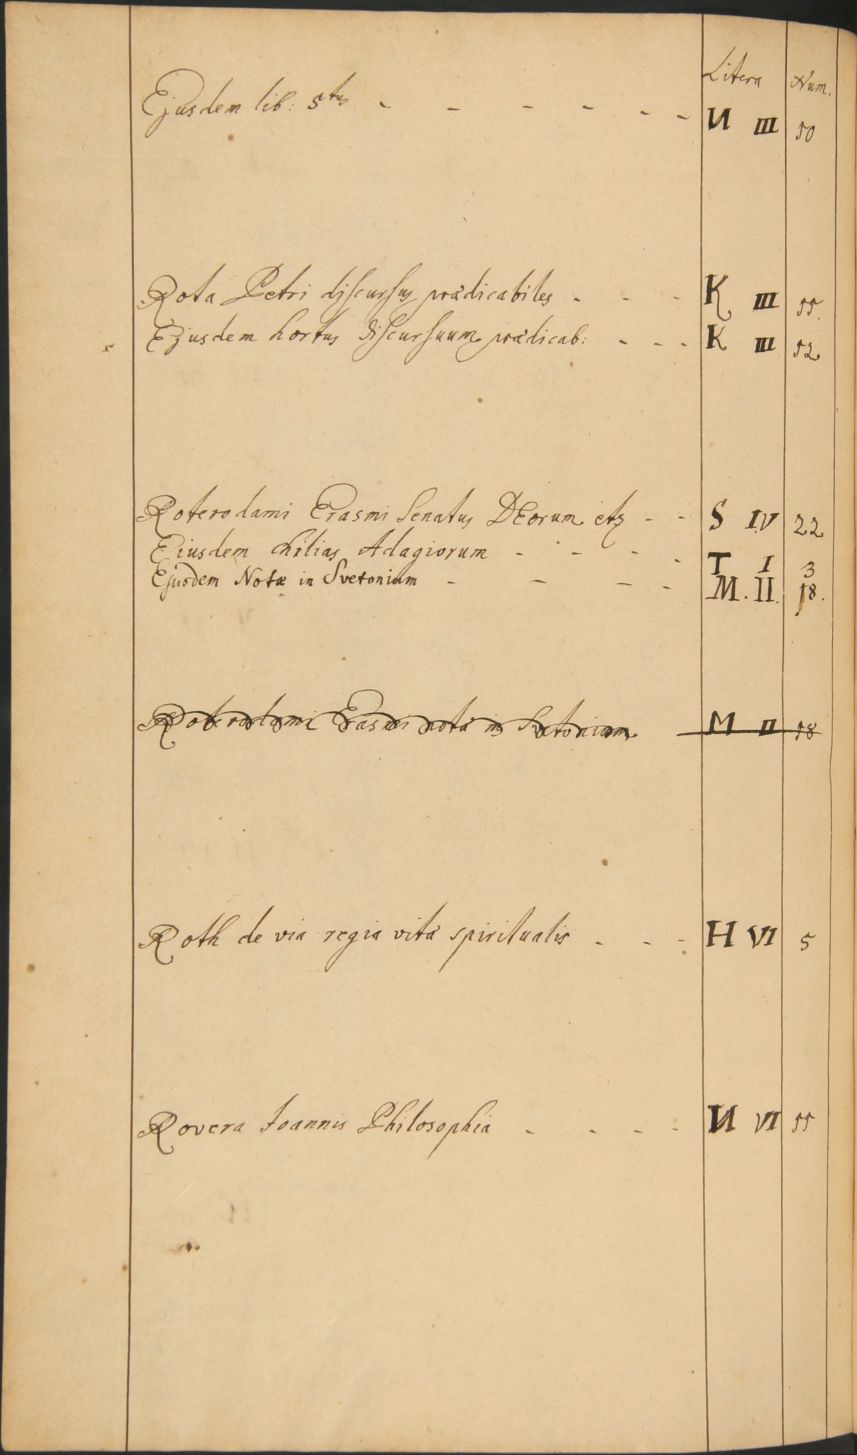 Litera Num.
Ejusdem lib: 5tus - - - - - - N III 50
Rota Petri discursus prædicabiles - - - K III 55.
Ejusdem hortus discursuum prædicab: - - - K III 52
Roterodami Erasmi Senatus DEorum etz - - S IV 22
Eiusdem chilias Adagiorum - - - - T I 3
Ejusdem Notæ in Svetonium - - - - M. II. 18.
Roterodami Erasmi notæ in Svetonium M II 58
Roth de via regia vitæ spiritualis - - - H VI 5
Rovera Joannis Philosophia - - - - N VI 55